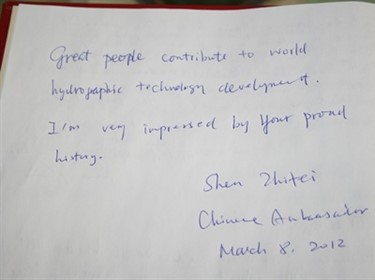 Great people contribute to world
hydrographic technology development.
I'm very impressed by your proud
history.
Shen Zhifei
Chinese Ambassador
March 8. 2012